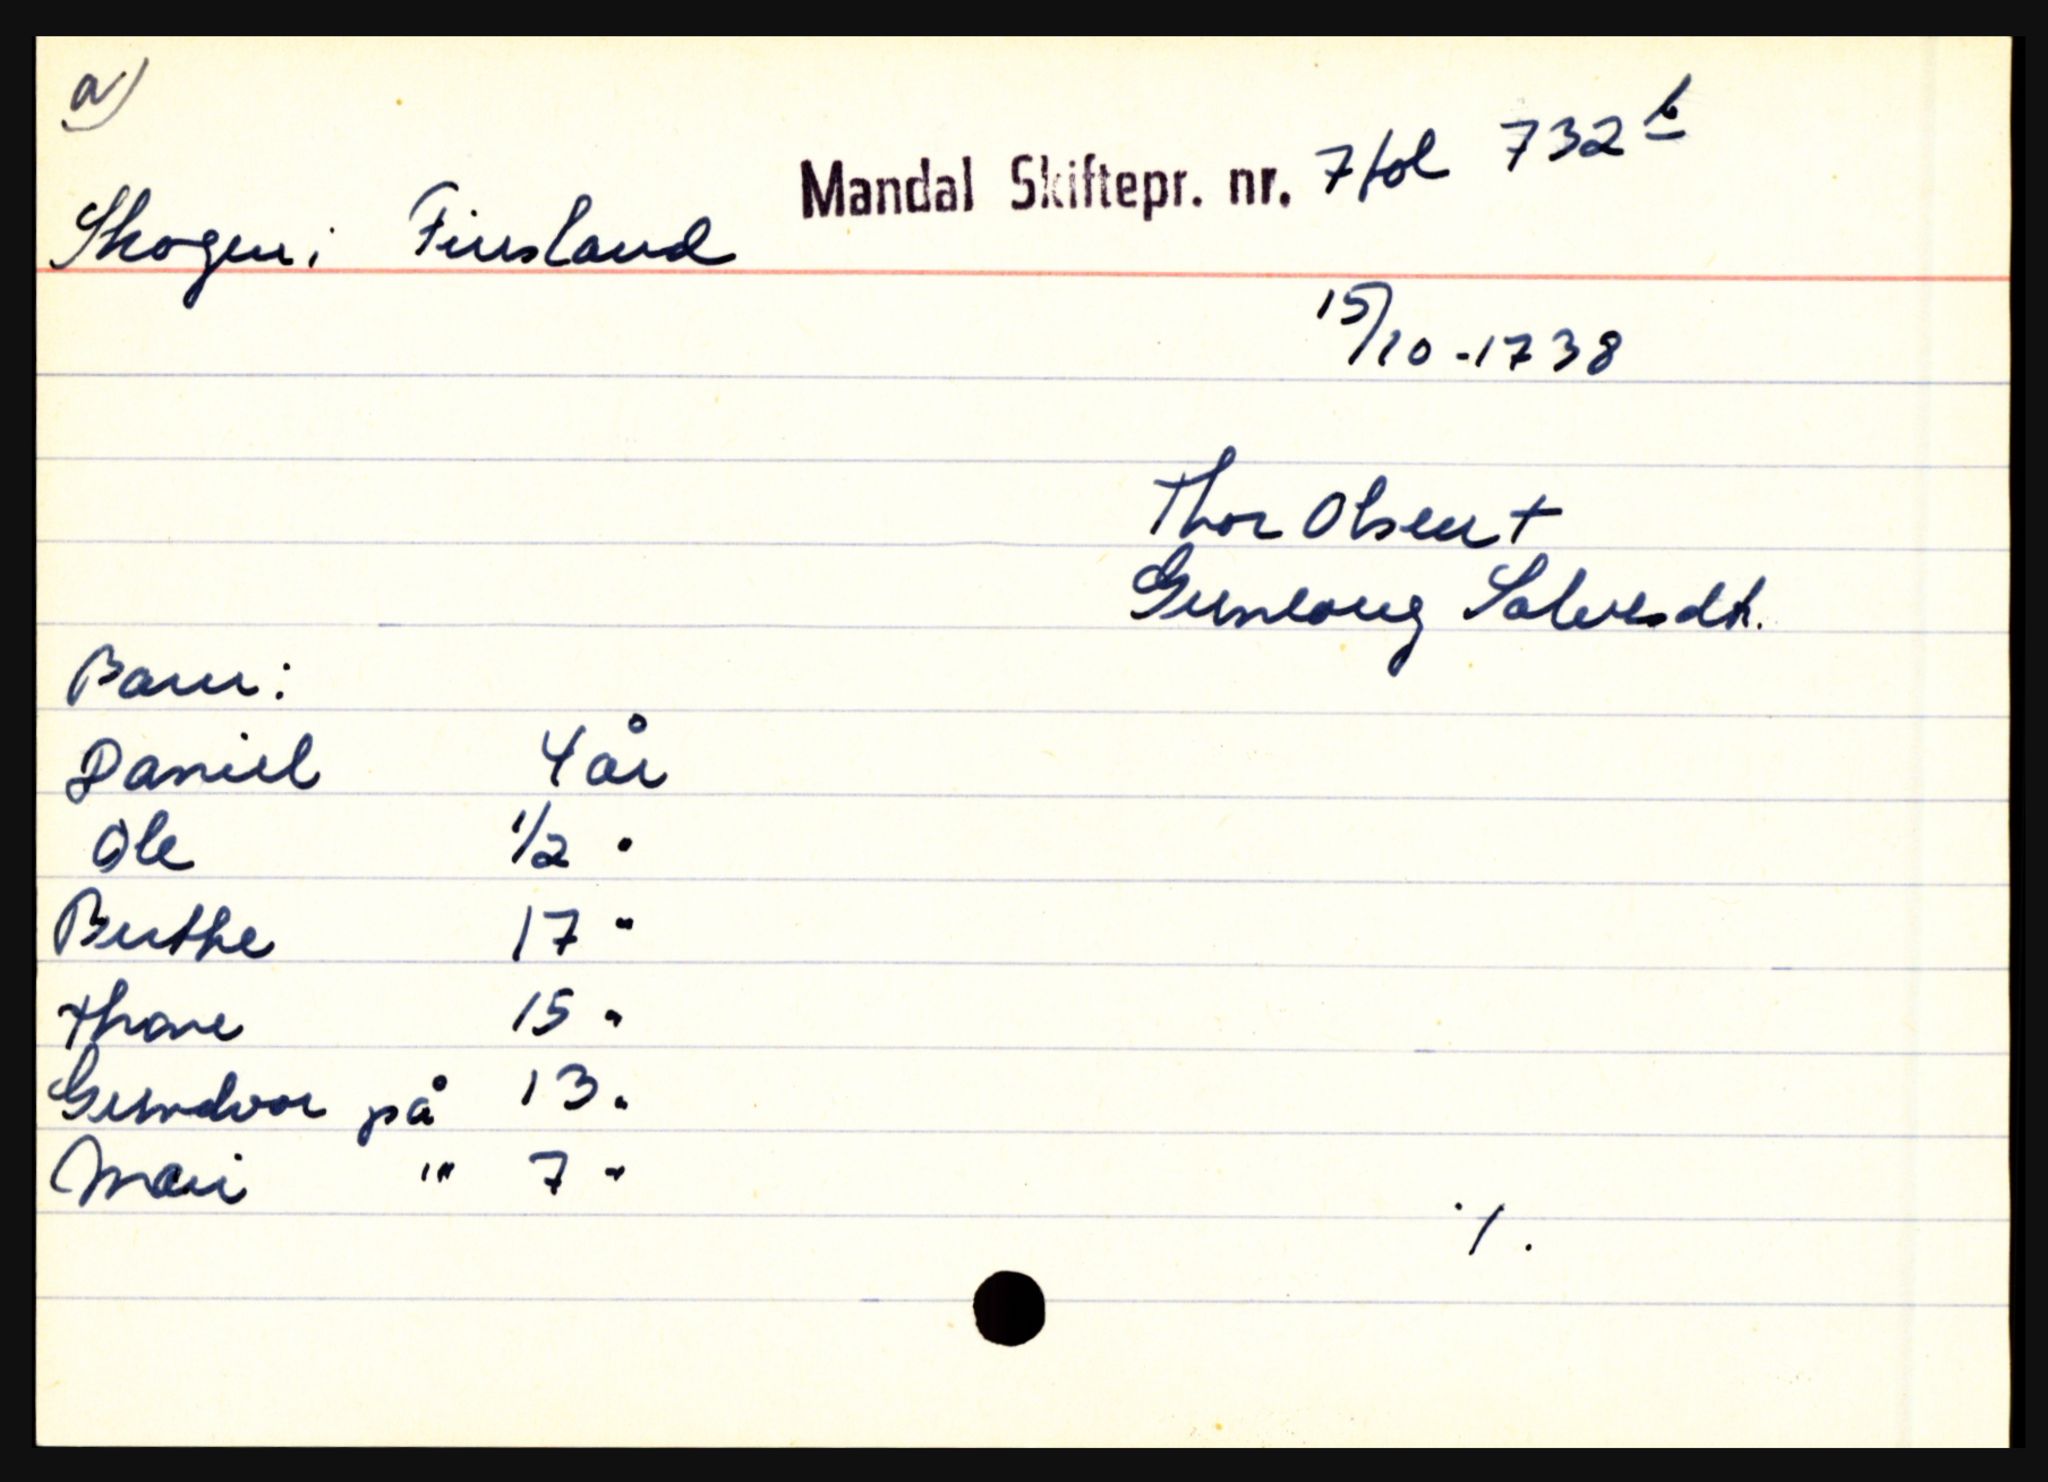 a)
Mandal Skiftepr. nr. 7 fol 732 b
Skogen i Finsland
15/10 - 1738
Thor Olsen +
Gunlaug Salvesdt.
Barn:
Daniel 4 år
Ole 1/2 "
Berthe 17 "
Thore 15 "
Gundvor på 13 "
Mari " 7 "
./.